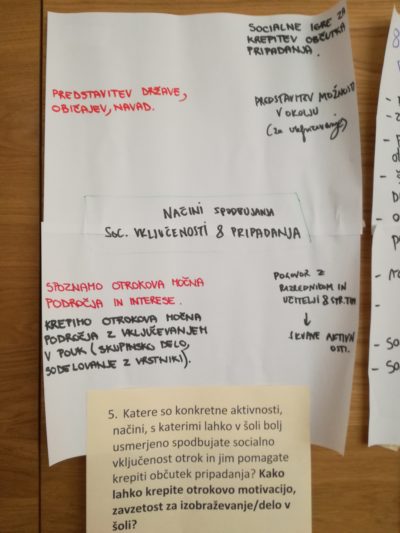 SOCIALNE IGRE ZA
KREPITEV OBČUTKA
PRIPADANJA.
PREDSTAVITEV DRŽAVE,
OBIČAJEV, NAVAD.
PREDSTAVITEV MOŽNOSTI
V OKOLJU
(za vključevanje)
NAČINI SPODBUJANJA
SOC. VKLJUČENOSTI & PRIPADANJA
SPOZNAMO OTROKOVA MOČNA
PODROČJA IN INTERESE.
KREPIMO OTROKOVA MOČNA
PODROČJA Z VKLJUČEVANJEM
V POUK (SKUPINSKO DELO,
SODELOVANJE Z VRSTNIKI).
POGOVOR Z
RAZREDNIKOM IN
UČITELJI &
↓
SKUPNE AKTIVN
OSTI.
5. Katere so konkretne aktivnosti,
načini, s katerimi lahko v šoli bolj
usmerjeno spodbujate socialno
vključenost otrok in jim pomagate
krepiti občutek pripadanja? Kako
lahko krepite otrokovo motivacijo,
zavzetost za izobraževanje/delo v
šoli?